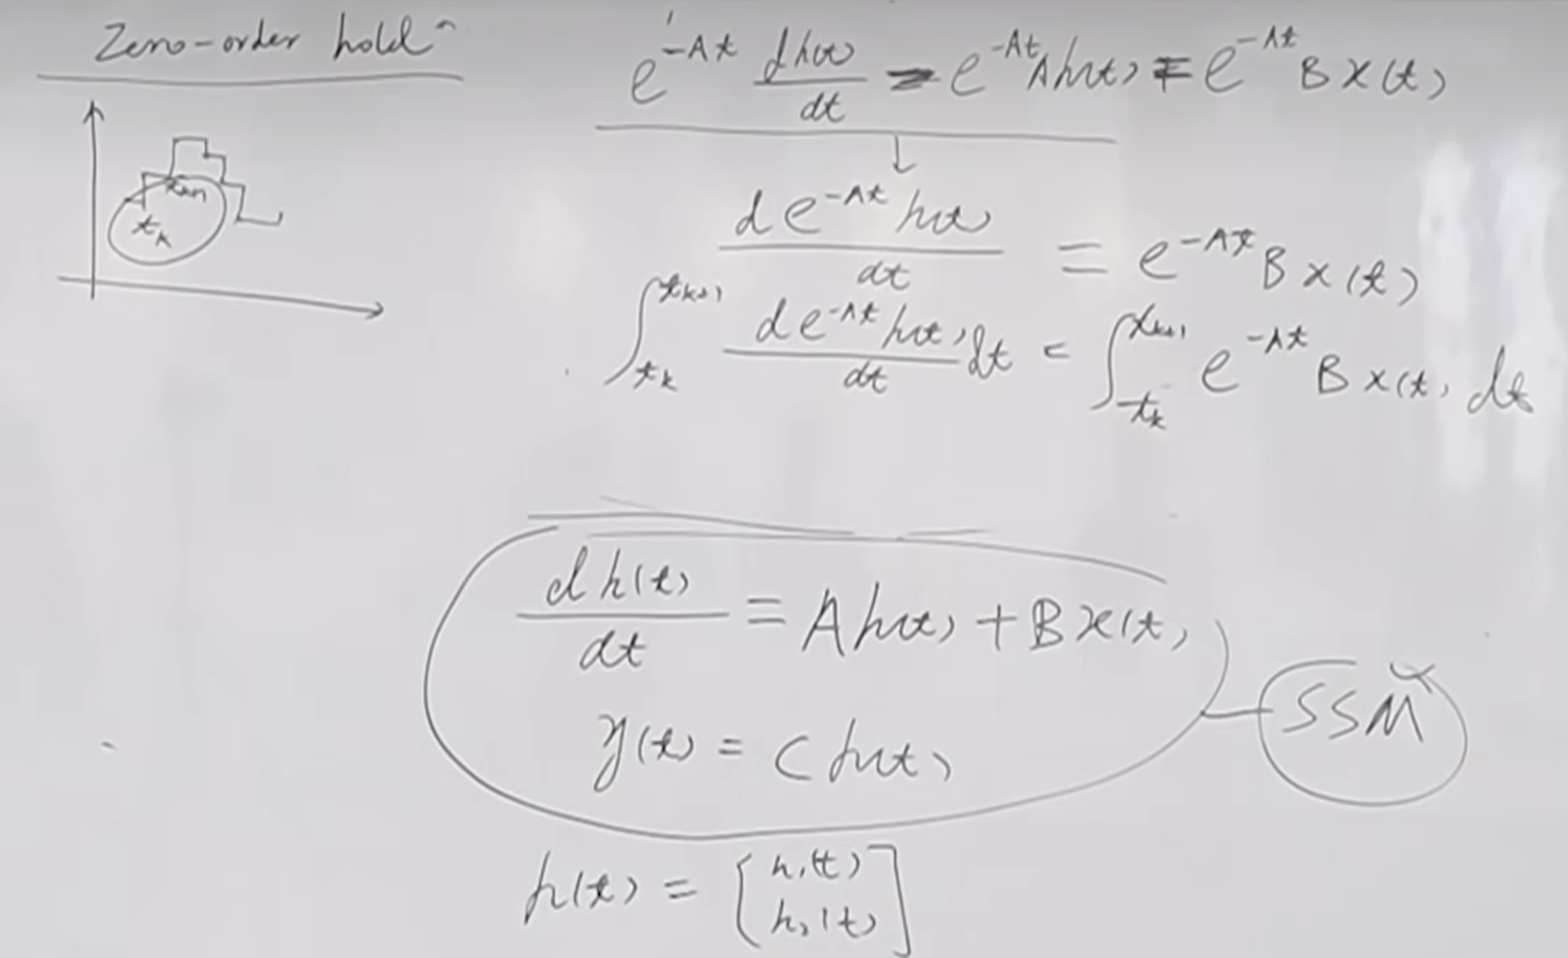 Zero-order hold
e^{-At} dh(t)/dt - e^{-At}Ah(t) = e^{-At} B x(t)
t_k t_{k+1}
de^{-At}h(t)/dt = e^{-At} B x(t)
∫_{t_k}^{t_{k+1}} de^{-At}h(t)/dt dt = ∫_{t_k}^{t_{k+1}} e^{-At} B x(t) dt
dh(t)/dt = Ah(t) + Bx(t)
SSM
y(t) = Ch(t)
h(t) = [h_1(t)
h_2(t)]